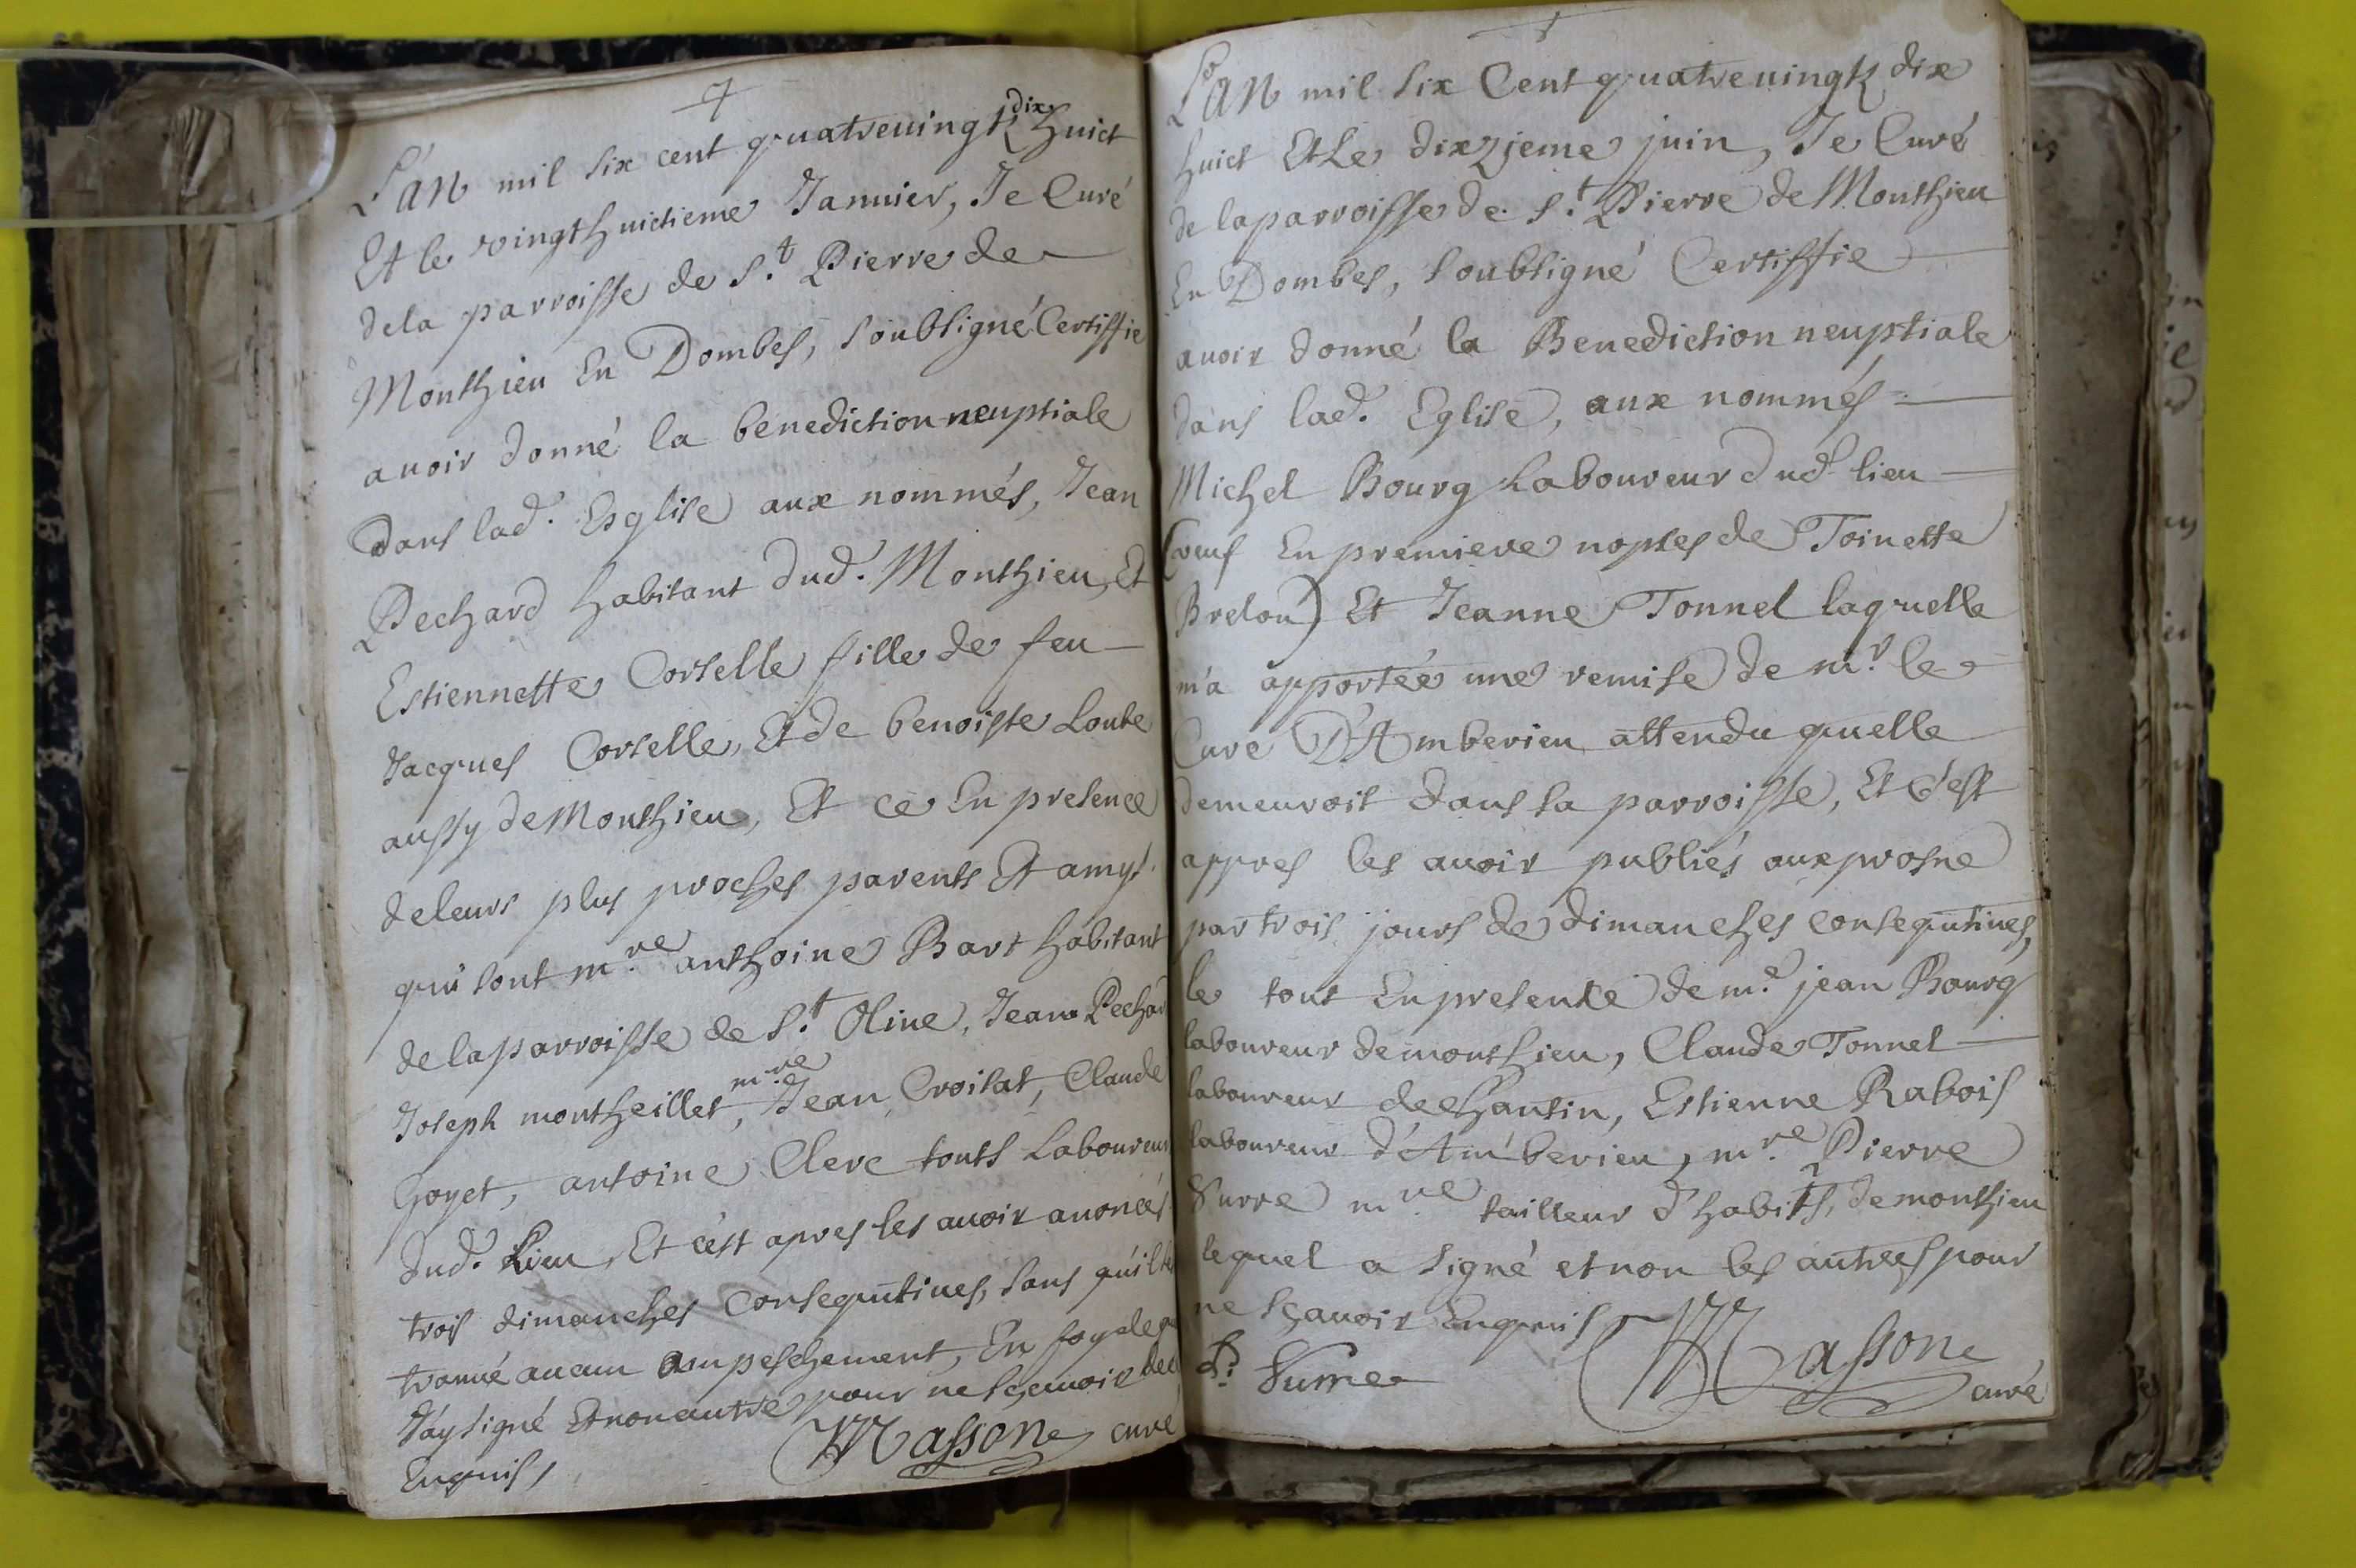 L'an mil six cent quatrevingts dix huict
Et le vingthuictieme Januier, Je Curé
dela parroisse de S.t Pierre de
Monthieu En Dombes, soubsigné Certiffie
auoir donné la benediction neuptiale
dans lad. Esglise aux nommés, Jean
Pechard habitant dud. Monthieu, Et
Estiennette Corselle fille de feu
Jacques Corselle, Et de benoiste Loube
aussy de Monthieu, Et ce En presence
de leurs plus proches parents Et amys.
qui sont m.re anthoine Bart habitant
de la parroisse de S.t Oliue, Jean Pechar
Joseph montheillet, m.re Jean Croisat, Claude
Goyet, antoine Clerc touts Laboureur
dud. Lieu, Et cést apres les auoir anoncés
trois dimanches consequtiues, sans qu'il
trouué aucun ampeschement, En foy de
J'ay signé Et non autre pour ne sçauoir de
Enquis,
Massone curé
L'an mil six Cent quatreuingts dix
huict Et Le dixzieme juin, Je Curé
de la parroisse de S.t Pierre de Monthieu
En Dombes, soubsigné Certiffie
auoir donné la Benediction neuptiale
dans lad. Eglise, aux nommés
Michel Bourg Laboureur dud. lieu
(veuf En premiere nopces de Toinette
Brelou) Et Jeanne Tonnel laquelle
m'a apportée une remise de m.r le
Curé D'Amberieu attendu quelle
demeuroit dans sa parroisse, Et c'est
appres les auoir publiés aux prosne
par trois jours de dimanches consequtiues,
le tout En presence de m.e jean Bourg
laboureur de monthieu, Claude Tonnel
laboureur de Chansin, Estienne Rabois
laboureur d'Amberieu, m.re Pierre
Surre m.re tailleur d'habits, de monthieu
lequel a signé et non les autres pour
ne sçauoir Enquis
P. Surre
Massone
curé